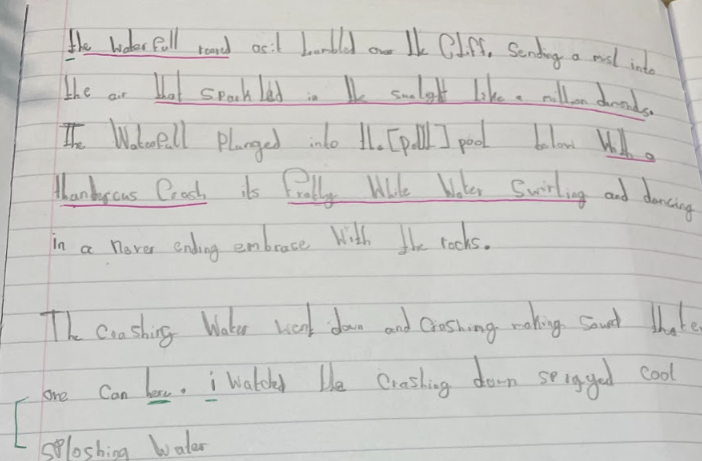 the waterfall roared as it tumbled over the Cliff. Sending a mist into
the air that sparkled in the sunlight like a million diamonds.
The Waterfall plunged into the [poll] pool below With a
thunderous Crash its frothy White Water Swirling and dancing
in a never ending embrace With the rocks.
The crashing Water went down and Crashing making sound that e
one can here. i Watched the Crashing down cool
sploshing Water